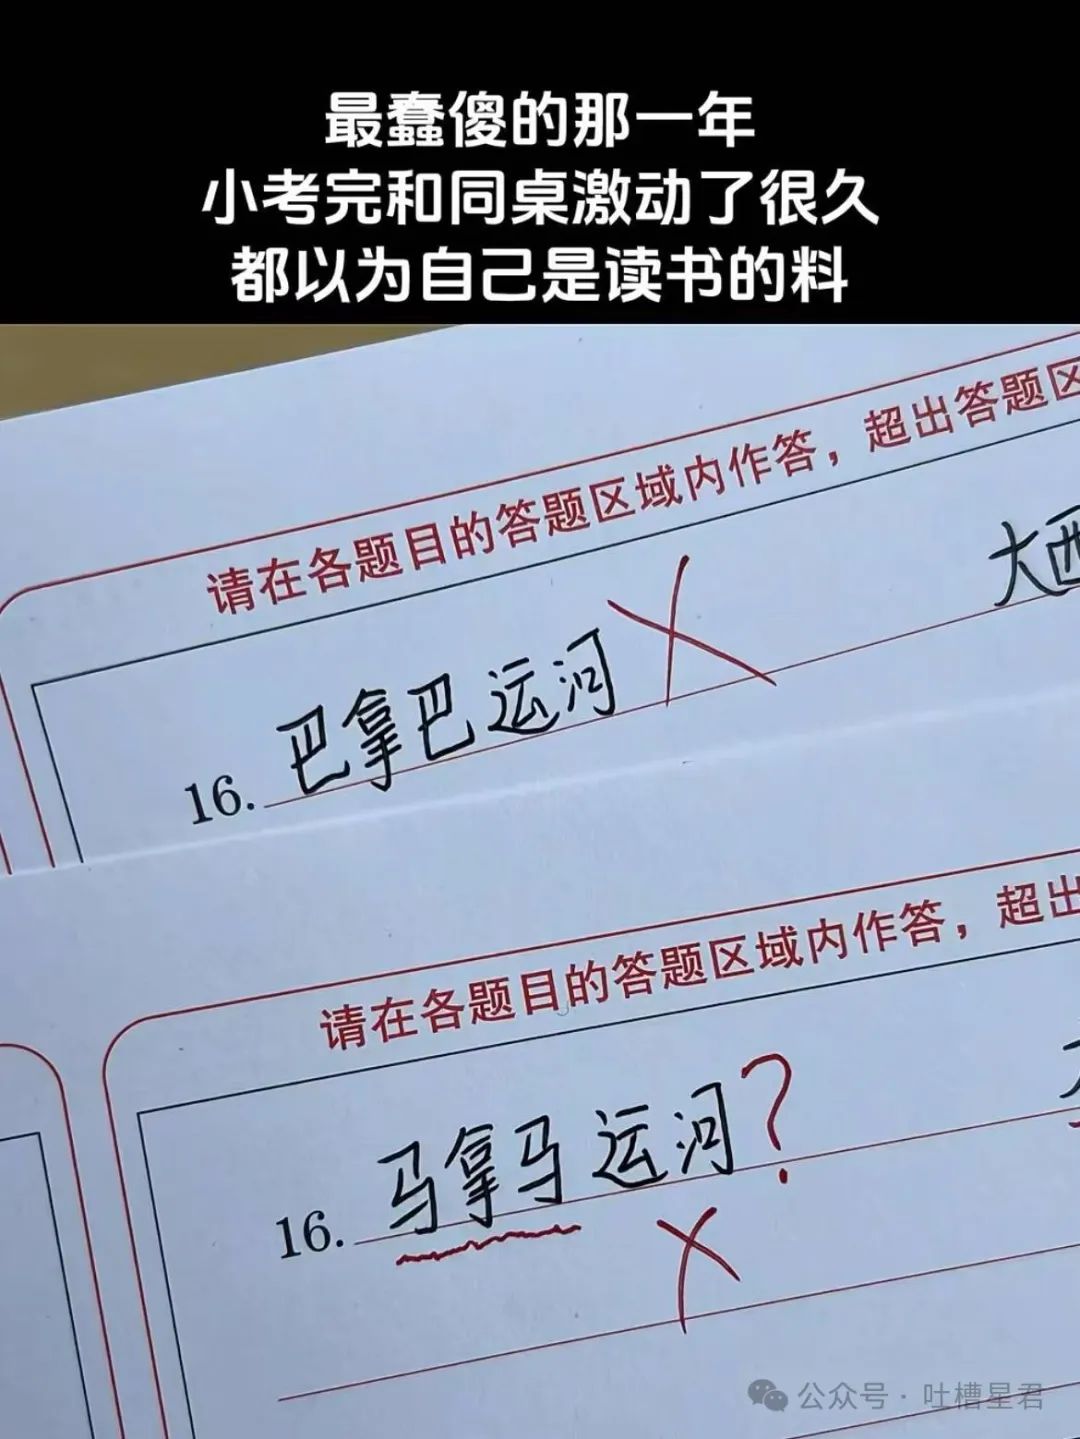 最蠢傻的那一年
小考完和同桌激动了很久
都以为自己是读书的料
请在各题目的答题区域内作答，超出答题区
大西
16. 巴拿巴运河
请在各题目的答题区域内作答，超出
16. 马拿马运河?
公众号 · 吐槽星君